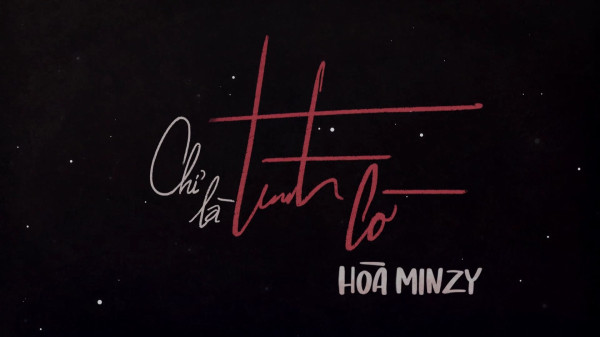 Chỉ là
tình cờ
HOÀ MINZY